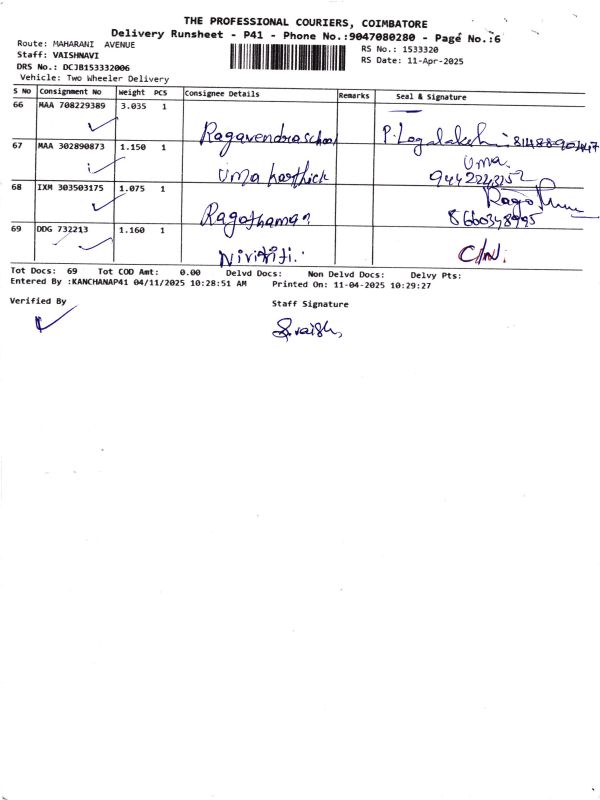 THE PROFESSIONAL COURIERS, COIMBATORE
Delivery Runsheet - P41 - Phone No.:9047080280 - Page No.:6
Route: MAHARANI AVENUE
RS No.: 1533320
Staff: VAISHNAVI
RS Date: 11-Apr-2025
DRS No.: DCJB153332006
Vehicle: Two Wheeler Delivery
S No Consignment No Weight PCS Consignee Details Remarks Seal & Signature
66 MAA 708229389 3.035 1
Ragavendra school P. Logalakshmi
67 MAA 302890873 1.150 1
Uma karthick Uma.
68 IXM 303503175 1.075 1
Ragothaman 8660348995
69 DDG 732213 1.160 1
C/N.
Tot Docs: 69 Tot COD Amt: 0.00 Delvd Docs: Non Delvd Docs: Delvy Pts:
Entered By :KANCHANAP41 04/11/2025 10:28:51 AM Printed On: 11-04-2025 10:29:27
Verified By Staff Signature